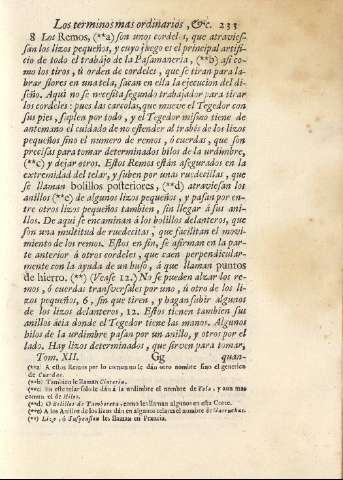 Los terminos mas ordinarios, &c. 233
8 Los Remos, (**a) son unos cordeles, que atravies-
san los lizos pequeños, y cuyo juego es el principal artifi-
cio de todo el trabajo de la Pasamaneria, (**b) asi co-
mo los tiros, ù orden de cordeles, que se tiran para la-
brar flores en una tela, sacan en ella la ejecucion del di-
seño. Aqui no se necesita segundo trabajador para tirar
los cordeles: pues las carcolas, que mueve el Tegedor con
sus pies, suplen por todo, y el Tegedor mismo tiene de
antemano el cuidado de no estender al trabés de los lizos
pequeños sino el numero de remos, ò cuerdas, que son
precisas para tomar determinados hilos de la urdimbre,
(**c) y dejar otros. Estos Remos están asegurados en la
extremidad del telar, y suben por unas ruedecillas, que
se llaman bolillos posteriores, (**d) atraviesan los
anillos (**e) de algunos lizos pequeños, y pasan por en-
tre otros lizos pequeños tambien, sin llegar á sus ani-
llos. De aqui se encaminan á los bolillos delanteros, que
son una multitud de ruedecitas, que facilitan el movi-
miento de los remos. Estos en fin, se afirman en la par-
te anterior á otros cordeles, que caen perpendicular-
mente con la ayuda de un huso, á que llaman puntos
de hierro. (**) (Vease 12.) No se pueden alzar los re-
mos, ò cuerdas transversales por uno, ù otro de los li-
zos pequeños, 6, sin que tiren, y hagan subir algunos
de los lizos delanteros, 12. Estos tienen tambien sus
anillos ácia donde el Tegedor tiene las manos. Algunos
hilos de la urdimbre pasan por un anillo, y otros por el
lado. Hay lizos determinados, que sirven para tomar,
Tom. XII. Gg quan-
(**a) A estos Remos por lo comun no le dán otro nombre sino el generico
de Cuerdas.
(**b) Tambien le llaman Cinteria.
(**c) En este telar solo le dán á la urdimbre el nombre de Tela, y aun mas
comun el de Hilos.
(**d) O Bolillos de Tamborete, como les llaman algunos en esta Corte.
(**e) A los Anillos de los lizos dán en algunos telares el nombre de Garruchas.
(**) Lizo, ò Suspension les llaman en Francia.